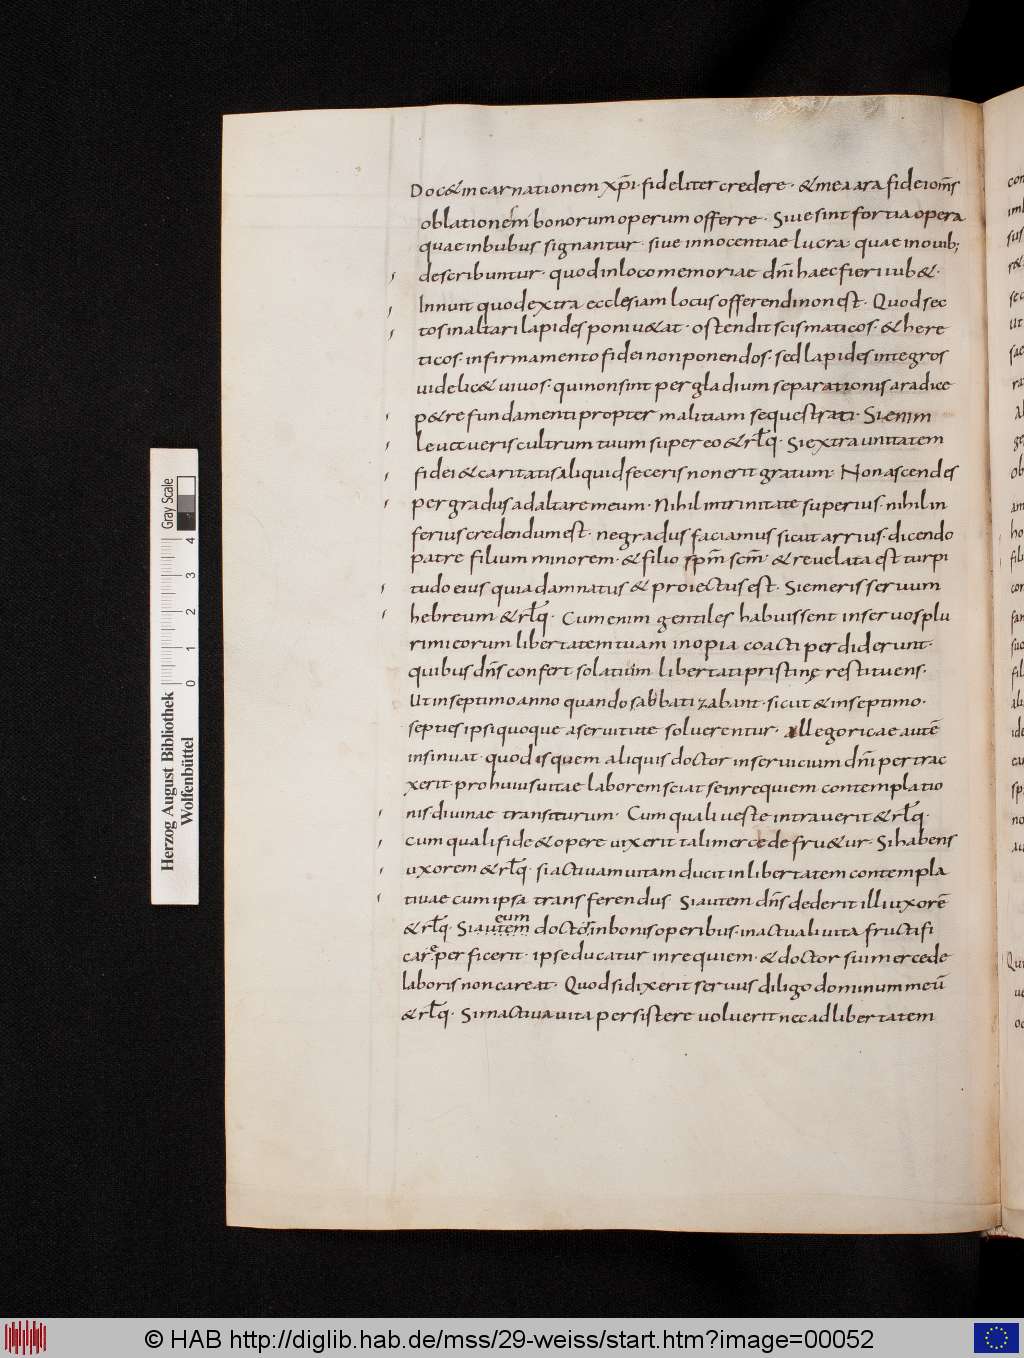 Doc& incarnationem xp̄i· fideliter credere· & mea ara fidei om̄s
oblationem bonorum operum offerre· Siue sint fortia opera
quae in bubus signantur· siue innocentiae lucra· quae in ouib;
describuntur· quod in loco memoriae dn̄i haec fieri iub&·
Innuit quod extra ecclesiam locus offerendi non est· Quod sec
tos in altari lapides poni u&at· ostendit scismaticos· & here
ticos· in firmamento fidei non ponendos· sed lapides integros
uidelic& uiuos· qui non sint per gladium separationis a radice
p&re fundamenti propter malitiam sequestrati· Si enim
leuaueris cultrum tuum super eo & rl̄q· Si extra unitatem
fidei & caritatis aliquid feceris non erit gratum· Non ascendes
per gradus ad altare meum· Nihil in trinitate superius· nihil in
ferius credendum est· ne gradus faciamus sicut arrius· dicendo
patre filium minorem· & filio sp̄m sc̄m· & reuelata est turpi
tudo eius quia damnatus & proiectus est· Si emeris seruum
hebreum & rl̄q· Cum enim gentiles habuissent in seruos plu
rimi eorum libertatem tuam inopia coacti perdiderunt·
quibus dn̄s confert solatium libertati pristinę restituens·
Ut in septimo anno quando sabbatizabant· sicut & in septimo·
septies ipsi quoque a seruitute soluerentur· allegoricae autē
insinuat· quod isquem aliquis doctor in seruicium dn̄i pertrac
xerit pro huius uitae labore m sciat se in requiem contemplatio
nis diuinae transiturum· Cum quali ueste intrauerit & rl̄q·
cum quali fide & opere uixerit tali mercede fru&ur· Si habens
uxorem & rl̄q· si actiuam uitam ducit in libertatem contempla
tiuae cum ipsa transferendus Si autem dn̄s dederit illi uxorē
eum
& rl̄q· Si autem doctor in bonis operibus· in actuali uita fructifi
care perficerit· ipse ducatur in requiem· & doctor sui mercede
laboris non careat· Quod si dixerit seruus diligo dominum meū
& rl̄q· Si in actiua uita persistere uoluerit nec ad libertatem
Herzog August Bibliothek
Wolfenbüttel
0 1 2 3 4
Gray Scale
© HAB http://diglib.hab.de/mss/29-weiss/start.htm?image=00052